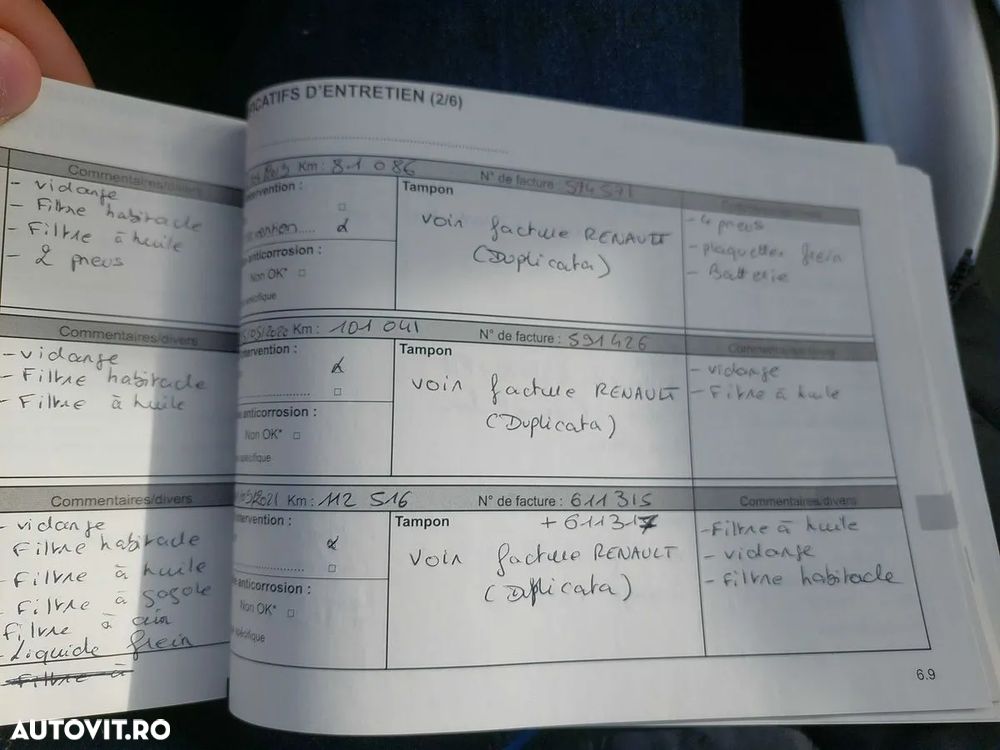 Commentaires/divers
- vidange
- Filtre habitacle
- Filtre à huile
- 2 pneus
Commentaires/divers
- vidange
- Filtre habitacle
- Filtre à huile
Commentaires/divers
- vidange
Filtre habitacle
- Filtre à huile
- Filtre à gasole
Filtre à air
- Liquide frein
ICATIFS D'ENTRETIEN (2/6)
Km : 81 086 N° de facture : 574571
tervention :
anticorrosion :
Non OK* □
spécifique
Tampon
voir facture RENAULT
(Duplicata)
- 4 pneus
- plaquettes frein
- Batterie
/05/2020 Km : 101 041 N° de facture : 591426
tervention :
anticorrosion :
Non OK* □
spécifique
Tampon
voir facture RENAULT
(Duplicata)
Commentaires/divers
- vidange
- Filtre à huile
2021 Km : 112 516 N° de facture : 611315
+ 611317
tervention :
anticorrosion :
Non OK* □
spécifique
Tampon
voir facture RENAULT
(Duplicata)
Commentaires/divers
- Filtre à huile
- vidange
- Filtre habitacle
6.9
AUTOVIT.RO